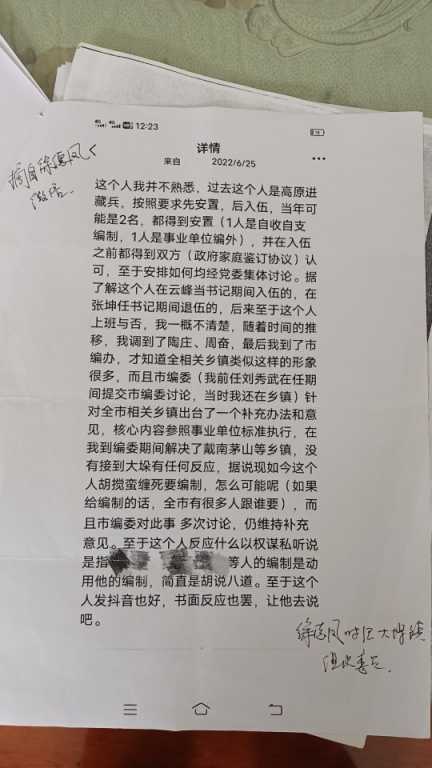 12:23
详情
来自 2022/6/25
摘自徐德风
微信.
这个人我并不熟悉，过去这个人是高原进
藏兵，按照要求先安置，后入伍，当年可
能是2名，都得到安置（1人是自收自支
编制，1人是事业单位编外），并在入伍
之前都得到双方（政府家庭鉴订协议）认
可，至于安排如何均经党委集体讨论。据
了解这个人在云峰当书记期间入伍的，在
张坤任书记期间退伍的，后来至于这个人
上班与否，我一概不清楚，随着时间的推
移，我调到了陶庄、周奋，最后我到了市
编办，才知道全相关乡镇类似这样的形象
很多，而且市编委（我前任刘秀武在任期
间提交市编委讨论，当时我还在乡镇）针
对全市相关乡镇出台了一个补充办法和意
见，核心内容参照事业单位标准执行，在
我到编委期间解决了戴南茅山等乡镇，没
有接到大垛有任何反应，据说现如今这个
人胡搅蛮缠死要编制，怎么可能呢（如果
给编制的话，全市有很多人跟谁要），而
且市编委对此事 多次讨论，仍维持补充
意见。至于这个人反应什么以权谋私听说
是指 等人的编制是动
用他的编制，简直是胡说八道。至于这个
人发抖音也好，书面反应也罢，让他去说
吧。
徐德风时任大垛镇